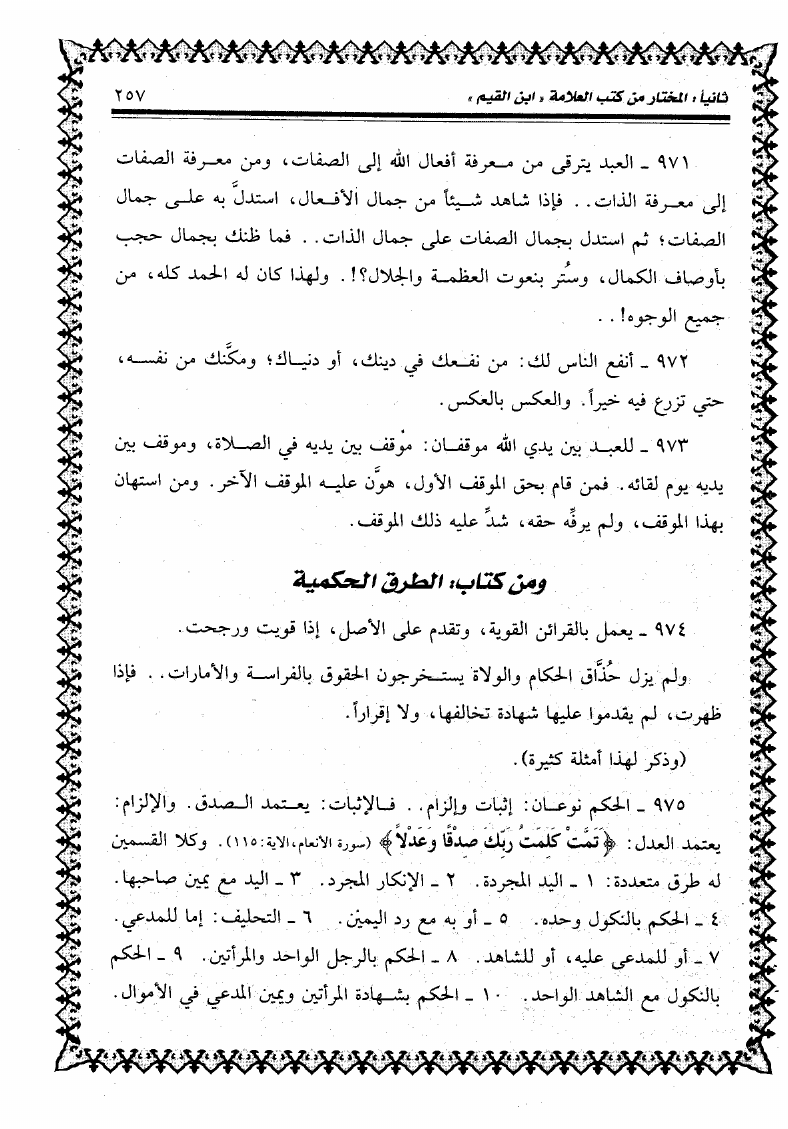 ثانياً: المختار من كتب العلامة «ابن القيم» ٢٥٧
٩٧١ ـ العبد يترقى من معرفة أفعال الله إلى الصفات، ومن معرفة الصفات
إلى معرفة الذات.. فإذا شاهد شيئاً من جمال الأفعال، استدلَّ به على جمال
الصفات؛ ثم استدل بجمال الصفات على جمال الذات.. فما ظنك بجمال حجب
بأوصاف الكمال، وسُتر بنعوت العظمة والجلال؟!. ولهذا كان له الحمد كله، من
جميع الوجوه!..
٩٧٢ ـ أنفع الناس لك: من نفعك في دينك، أو دنياك؛ ومكَّنك من نفسه،
حتي تزرع فيه خيراً. والعكس بالعكس.
٩٧٣ ـ للعبد بين يدي الله موقفان: موْقف بين يديه في الصلاة، وموقف بين
يديه يوم لقائه. فمن قام بحق الموقف الأول، هوَّن عليه الموقف الآخر. ومن استهان
بهذا الموقف، ولم يرفِّه حقه، شدَّ عليه ذلك الموقف.
ومن كتاب: الطرق الحكمية
٩٧٤ ـ يعمل بالقرائن القوية، وتقدم على الأصل، إذا قويت ورجحت.
ولم يزل حُذَّاق الحكام والولاة يستخرجون الحقوق بالفراسة والأمارات.. فإذا
ظهرت، لم يقدموا عليها شهادة تخالفها، ولا إقراراً.
(وذكر لهذا أمثلة كثيرة).
٩٧٥ ـ الحكم نوعان: إثبات وإلزام.. فالإثبات: يعتمد الصدق. والإلزام:
يعتمد العدل: ﴿تَمَّتْ كَلِمَتُ رَبِّكَ صِدْقًا وَعَدْلاً﴾ (سورة الأنعام، الآية: ١١٥). وكلا القسمين
له طرق متعددة: ١ ـ اليد المجردة. ٢ ـ الإنكار المجرد. ٣ ـ اليد مع يمين صاحبها.
٤ ـ الحكم بالنكول وحده. ٥ ـ أو به مع رد اليمين. ٦ ـ التحليف: إما للمدعي.
٧ ـ أو للمدعى عليه، أو للشاهد. ٨ ـ الحكم بالرجل الواحد والمرأتين. ٩ ـ الحكم
بالنكول مع الشاهد الواحد. ١٠ ـ الحكم بشهادة المرأتين ويمين المدعي في الأموال.